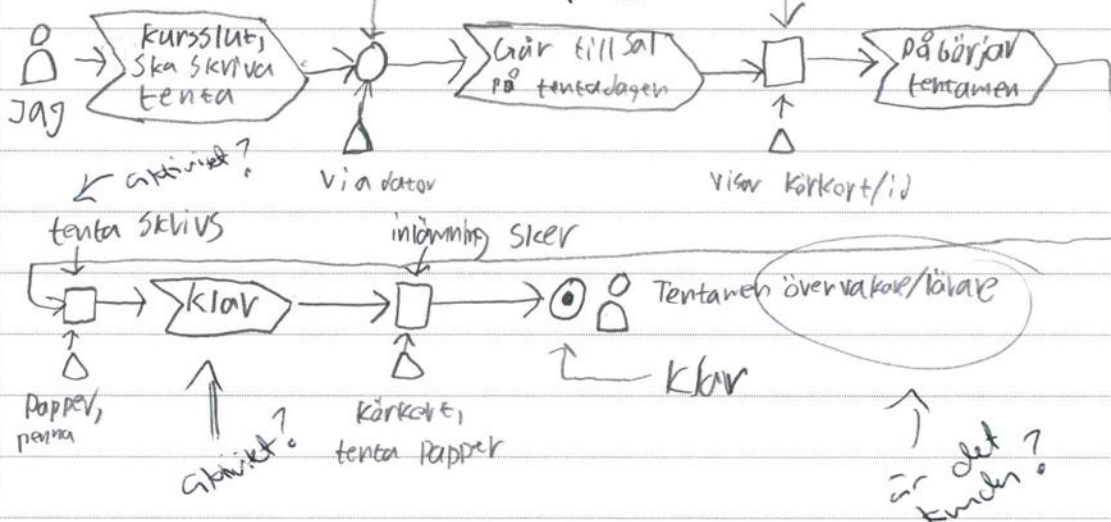 kursslut,
ska skriva
tenta
Går till sal
på tentadagen
påbörjar
tentamen
Jag
aktivitet?
via dator
visar körkort/id
tenta skrivs
inlämning sker
klar
Tentamen övervakare/lärare
Klar
papper,
penna
körkort,
tenta papper
aktivitet?
är det
kunden?